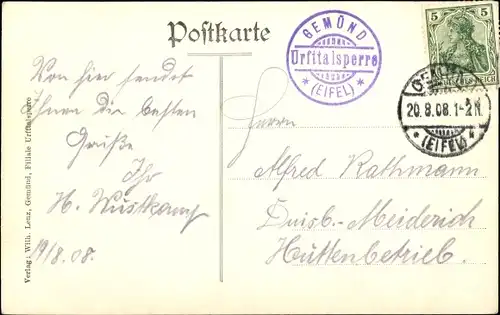 Postkarte
GEMÜND
Urfttalsperre
* (EIFEL) *
5 5
REICH
GEMÜND
20.8.08.1-2N.
* (EIFEL) *
Von hier sendet
Ihnen die besten
Grüße
Ihr
H. Wüstkamp
19/8.08.
Herrn
Alfred Rathmann
Duisb.-Meiderich
Hüttenbetrieb.
Verlag: Wilh. Lenz, Gemünd, Filiale Urfttalsperre